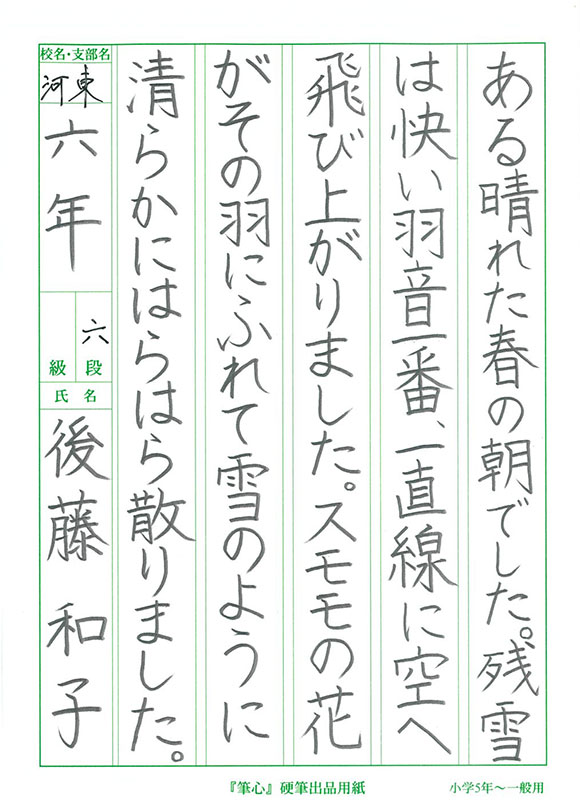 ある晴れた春の朝でした。残雪
は快い羽音一番、一直線に空へ
飛び上がりました。スモモの花
がその羽にふれて雪のように
清らかにはらはら散りました。
校名・支部名
河東
六年
六
段
級
氏名
後藤和子
『筆心』硬筆出品用紙
小学5年～一般用